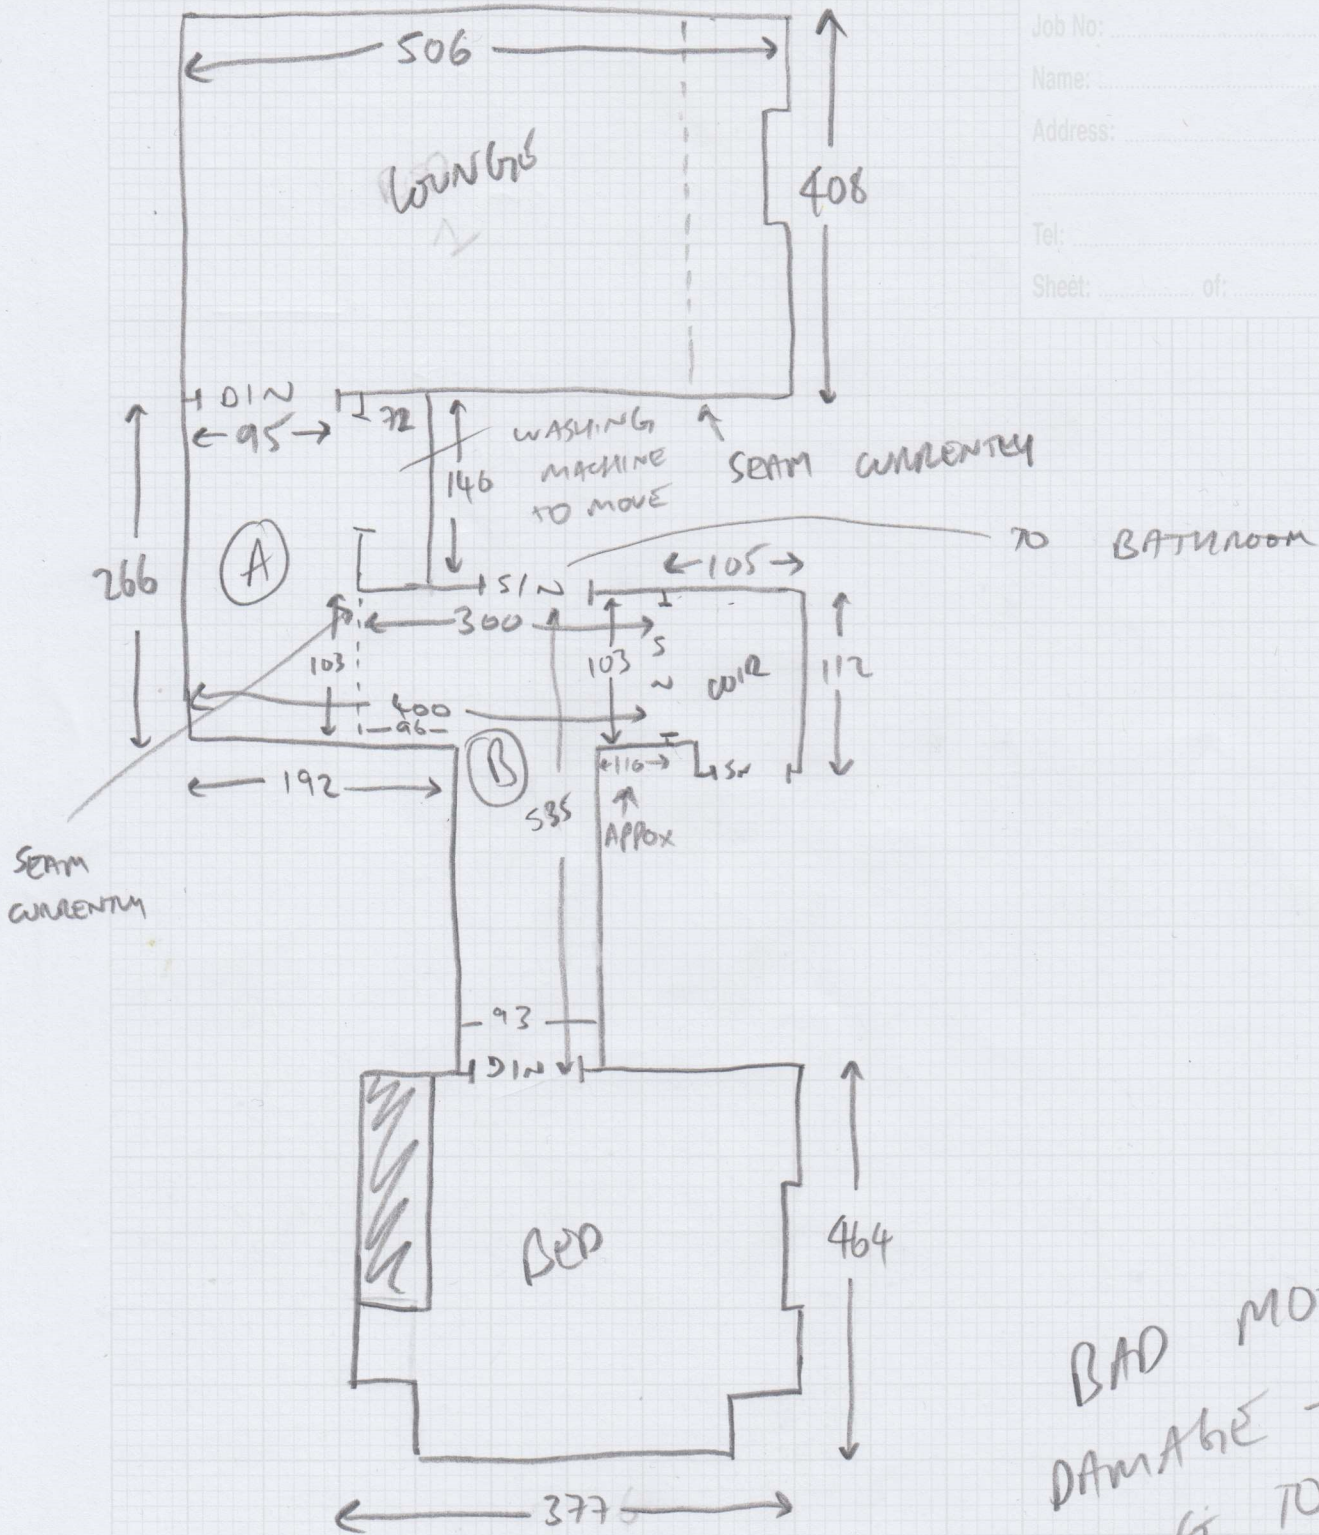 Job No:
Name:
Address:
Tel:
Sheet: of:
506
LOUNGE
408
DIN
95
72
146
WASHING
MACHINE
TO MOVE
SEAM CURRENTLY
TO BATHROOM
266
A
S/N
105
300
103
103
S
N
COIR
112
400
96
192
B
110
SN
535
APPOX
SEAM
CURRENTLY
93
DIN
BED
464
377
BAD MO
DAMAGE -
G TO